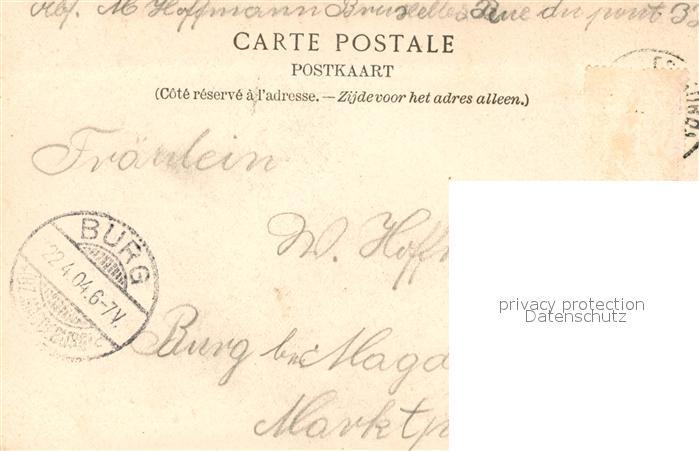 Abs. M Hoffmann Bruxelles Rue du pont 3
CARTE POSTALE
POSTKAART
(Côté réservé à l'adresse. — Zijde voor het adres alleen.)
Fräulein
W. Hoff
BURG
22.4.04.6-7V.
Burg bei Magd
Marktp
privacy protection
Datenschutz